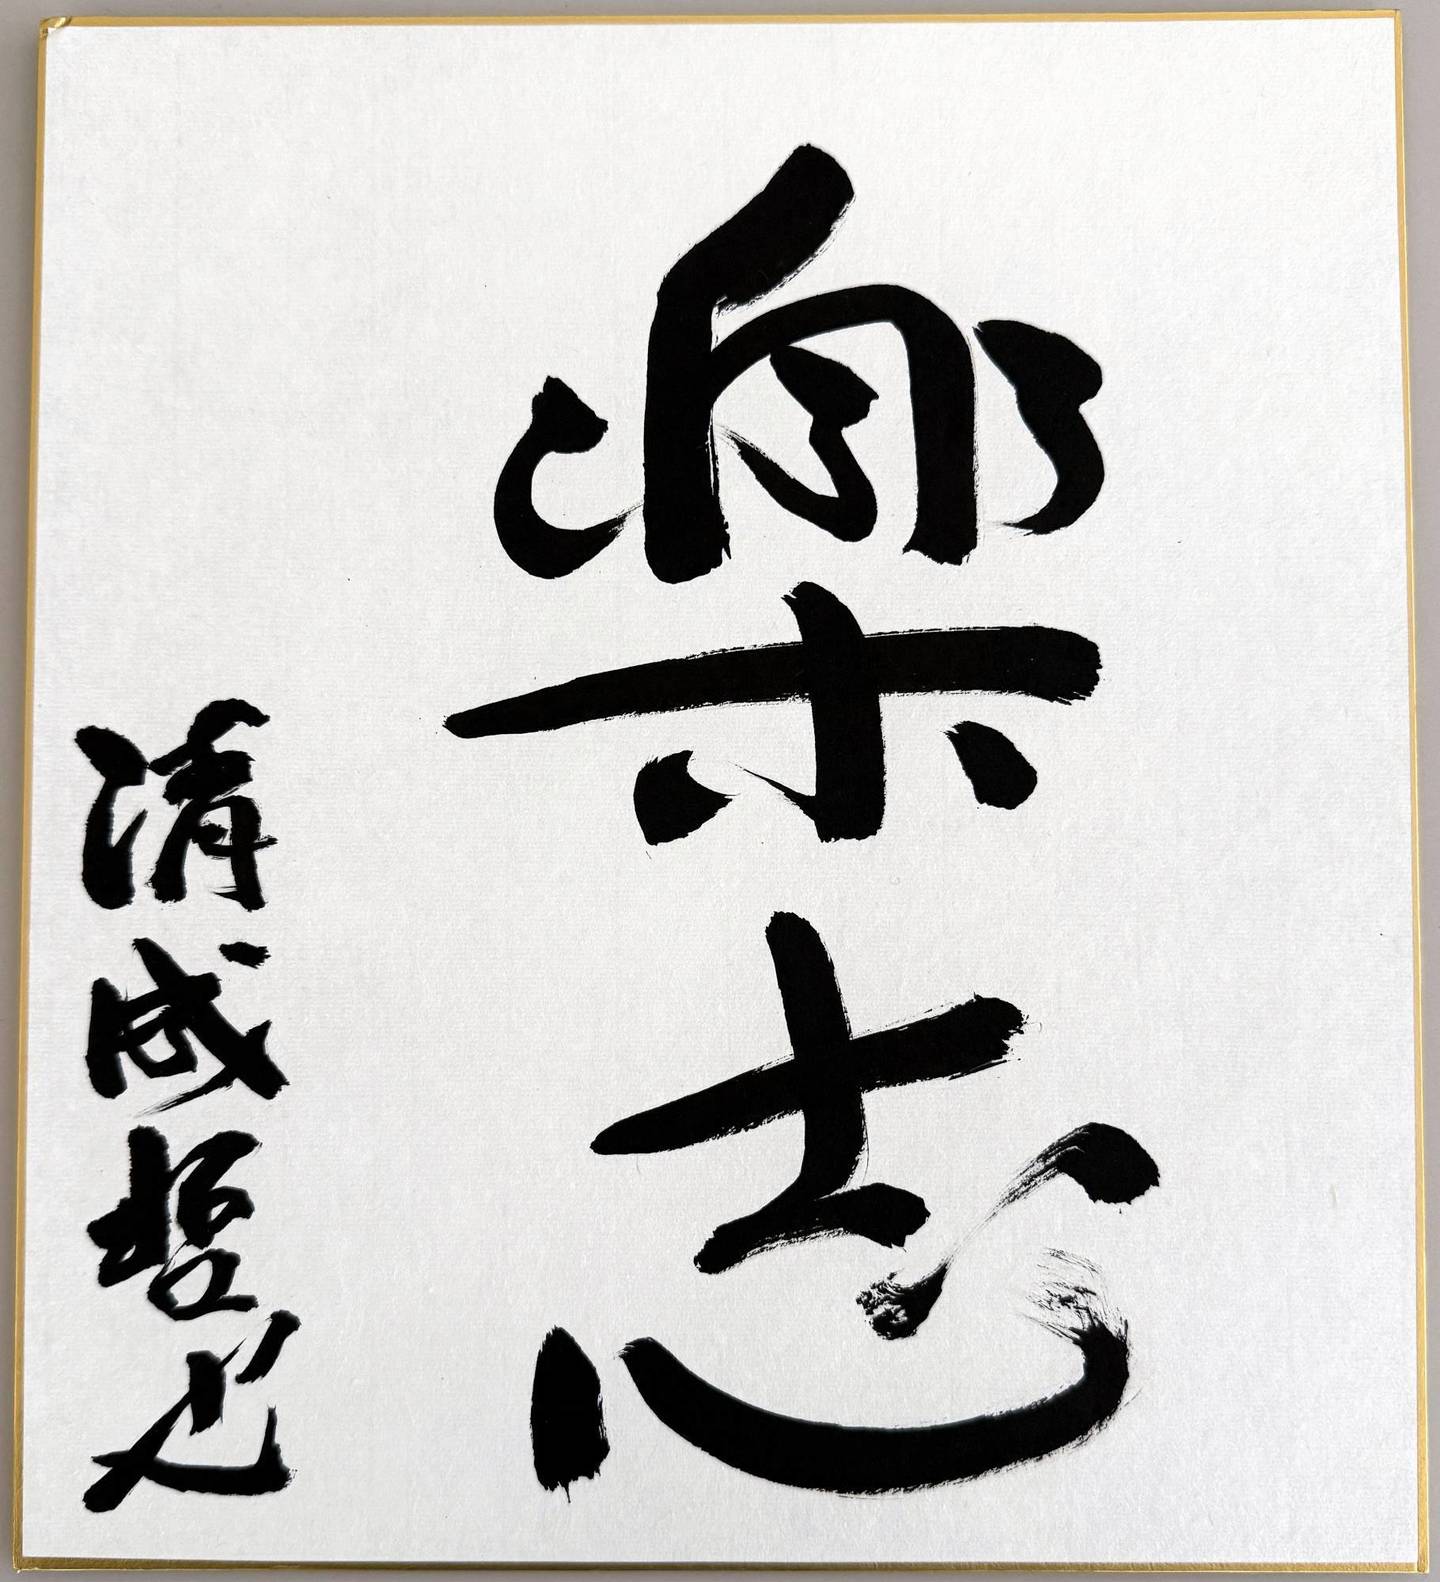 楽志
清成哲也